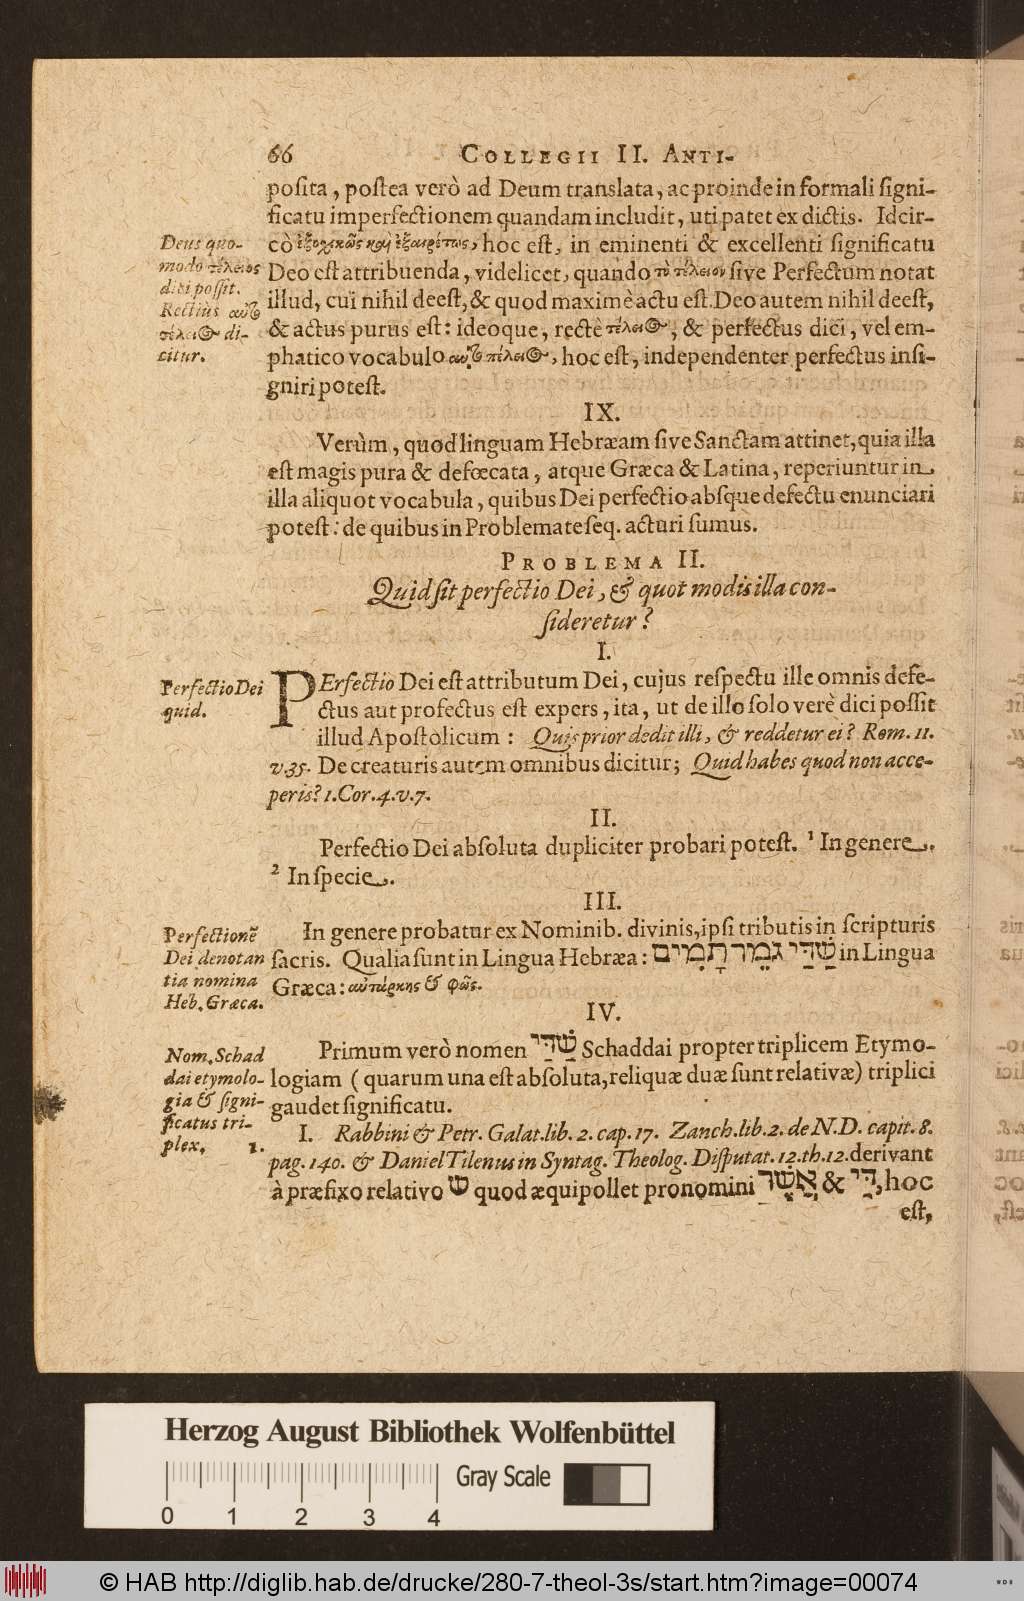 66 COLLEGII II. ANTI-
posita, postea verò ad Deum translata, ac proinde in formali signi-
ficatu imperfectionem quandam includit, uti patet ex dictis. Idcir-
cò ἐξοχικῶς καὶ ἐξαιρέτως, hoc est, in eminenti & excellenti significatu
Deo est attribuenda, videlicet, quando τὸ τέλειον sive Perfectum notat
illud, cui nihil deest, & quod maximè actu est. Deo autem nihil deest,
& actus purus est: ideoque, rectè τέλειος, & perfectus dici, vel em-
phatico vocabulo αὐτοτέλειος, hoc est, independenter perfectus insi-
gniri potest.
Deus quo-
modo τέλειος
dici possit.
Rectiùs αὐτο
τέλειος di-
citur.
IX.
Verùm, quod linguam Hebræam sive Sanctam attinet, quia illa
est magis pura & defœcata, atque Græca & Latina, reperiuntur in
illa aliquot vocabula, quibus Dei perfectio absque defectu enunciari
potest: de quibus in Problemate seq. acturi sumus.
PROBLEMA II.
Quid sit perfectio Dei, & quot modis illa con-
sideretur?
I.
Perfectio Dei
quid.
PErfectio Dei est attributum Dei, cujus respectu ille omnis defe-
ctus aut profectus est expers, ita, ut de illo solo verè dici possit
illud Apostolicum: Quis prior dedit illi, & reddetur ei? Rom. 11.
v.35. De creaturis autem omnibus dicitur; Quid habes quod non acce-
peris? 1. Cor. 4. v. 7.
II.
Perfectio Dei absoluta dupliciter probari potest. 1 In genere.
2 In specie.
III.
Perfectionẽ
Dei denotan
tia nomina
Heb. Græca.
In genere probatur ex Nominib. divinis, ipsi tributis in scripturis
sacris. Qualia sunt in Lingua Hebræa: שַׁדַּי גֹּמֵר תָּמִים in Lingua
Græca: αὐτάρκης & φῶς.
IV.
Nom. Schad
dai etymolo-
gia & signi-
ficatus tri-
plex. 1.
Primum verò nomen שַׁדַּי Schaddai propter triplicem Etymo-
logiam (quarum una est absoluta, reliquæ duæ sunt relativæ) triplici
gaudet significatu.
I. Rabbini & Petr. Galat. lib. 2. cap. 17. Zanch. lib. 2. de N. D. capit. 8.
pag. 140. & Daniel Tilenus in Syntag. Theolog. Disputat. 12. th. 12. derivant
à præfixo relativo שׁ quod æquipollet pronomini אֲשֶׁר & דַּי, hoc
est,
Herzog August Bibliothek Wolfenbüttel
Gray Scale
0 1 2 3 4
© HAB http://diglib.hab.de/drucke/280-7-theol-3s/start.htm?image=00074